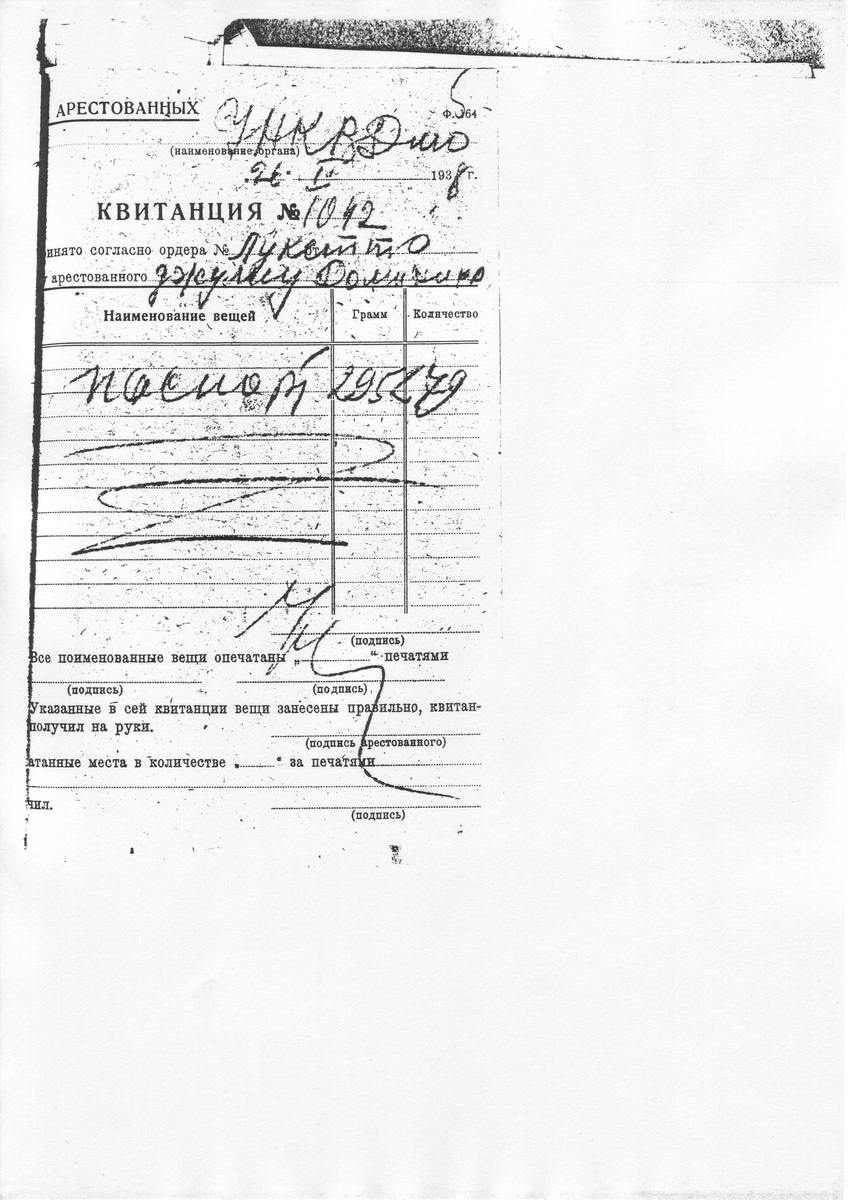 АРЕСТОВАННЫХ
Ф. 164
УНКВД мо
(наименование органа)
26. I 1938 г.
КВИТАНЦИЯ № 1042
инято согласно ордера №
у арестованного
Наименование вещей Грамм Количество
паспорт 295279
(подпись)
Все поименованные вещи опечатаны „ “ печатями
(подпись) (подпись)
Указанные в сей квитанции вещи занесены правильно, квитан-
получил на руки.
(подпись арестованного)
атанные места в количестве „ “ за печатями
чил.
(подпись)